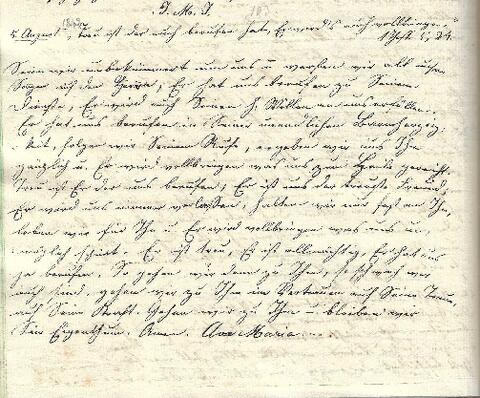 J. M. J.
5 August „Treu ist der euch berufen hat, Er wird's auch vollbringen."
1 Thess. 5, 24.
Seien wir unbekümmert um uns u werfen wir all unsere
Sorgen auf den Herrn, Er hat uns berufen zu Seinem
Dienste, Er wird auch Seinen h. Willen an uns erfüllen.
Er hat uns berufen in Seiner unendlichen Barmherzig-
keit, folgen wir Seinem Rufe, ergeben wir uns Ihm
gänzlich u. Er wird vollbringen was uns zum Heile gereicht.
Treu ist Er der uns berufen, Er ist uns der treueste Freund,
Er wird uns nimmer verlassen, halten wir nur fest an Ihm,
leben wir für Ihn u Er wird vollbringen was uns un-
möglich scheint. Er ist treu, Er ist allmächtig, Er hat uns
ja berufen. So gehen wir denn zu Ihm, so schwach wir
auch sind, gehen wir zu Ihm im Vertrauen auf Seine Treue,
auf Seine Kraft. Gehen wir zu Ihm u bleiben wir
Sein Eigenthum. Amen. Ave Maria